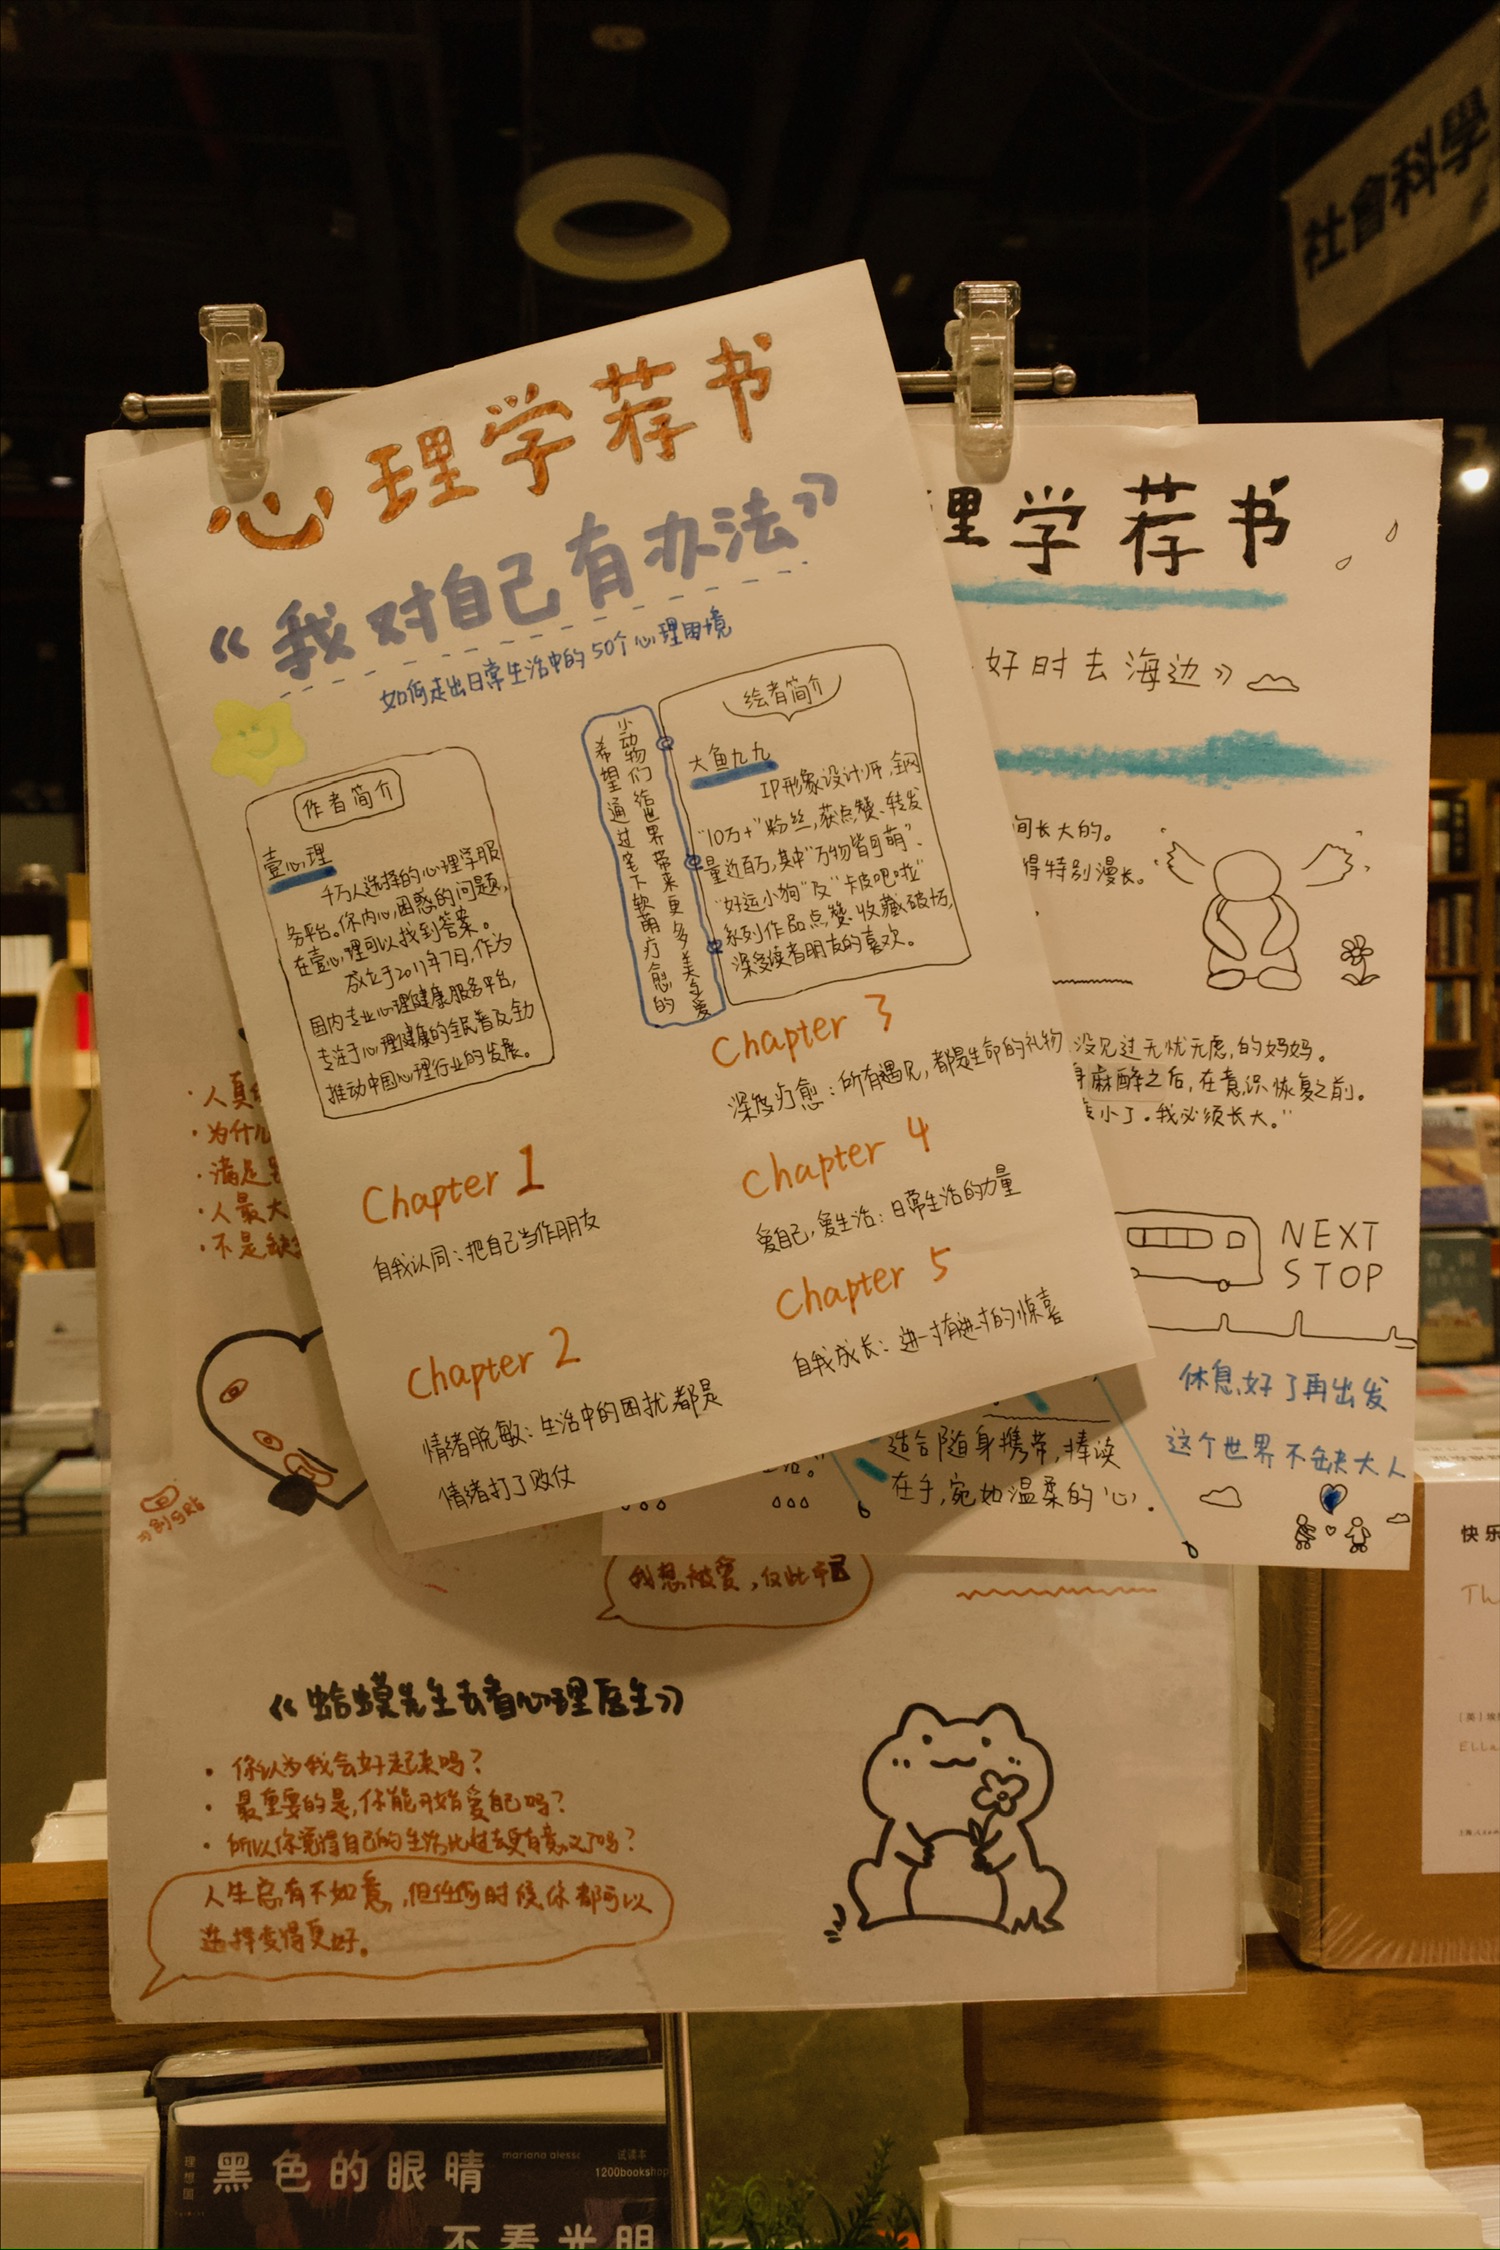 社會科學
心理学荐书
《我对自己有办法》
如何走出日常生活中的50个心理困境
作者简介
壹心理
千万人选择的心理学服
务平台。你内心困惑的问题，
在壹心理可以找到答案。
成立于2011年7月，作为
国内专业心理健康服务平台，
专注于心理健康的全民普及全力
推动中国心理行业的发展。
小动物们给世界带来更多美与爱
希望通过笔下软萌疗愈的
绘者简介
大鱼九九
IP形象设计师，全网
"10万+"粉丝，获点赞、转发
量近百万，其中"万物皆可萌"、
"好运小狗"及"卡皮吧啦"
系列作品点赞、收藏破万，
深受读者朋友的喜欢。
Chapter 1
自我认同：把自己当作朋友
Chapter 2
情绪脱敏：生活中的困扰都是
情绪打了败仗
Chapter 3
深度疗愈：所有遇见，都是生命的礼物
Chapter 4
爱自己，爱生活：日常生活的力量
Chapter 5
自我成长：进一寸有进一寸的惊喜
理学荐书
好时去海边》
间长大的。
得特别漫长。
没见过无忧无虑的妈妈。
麻醉之后，在意识恢复之前。
小了。我必须长大。"
NEXT
STOP
休息好了再出发
这个世界不缺大人
适合随身携带，捧读
在手，宛如温柔的心。
·人真
·为什么
·满足
·人最大
·不是缺
我想被爱，仅此而已
《蛤蟆先生去看心理医生》
·你认为我会好起来吗？
·最重要的是，你能开始爱自己吗？
·所以你觉得自己的生活比过去更有意义了吗？
人生总有不如意，但任何时候你都可以
选择变得更好。
快乐
Th
[英]埃
ELLA
理想国
黑色的眼睛
mariana
试读本
1200booksho
不看光明